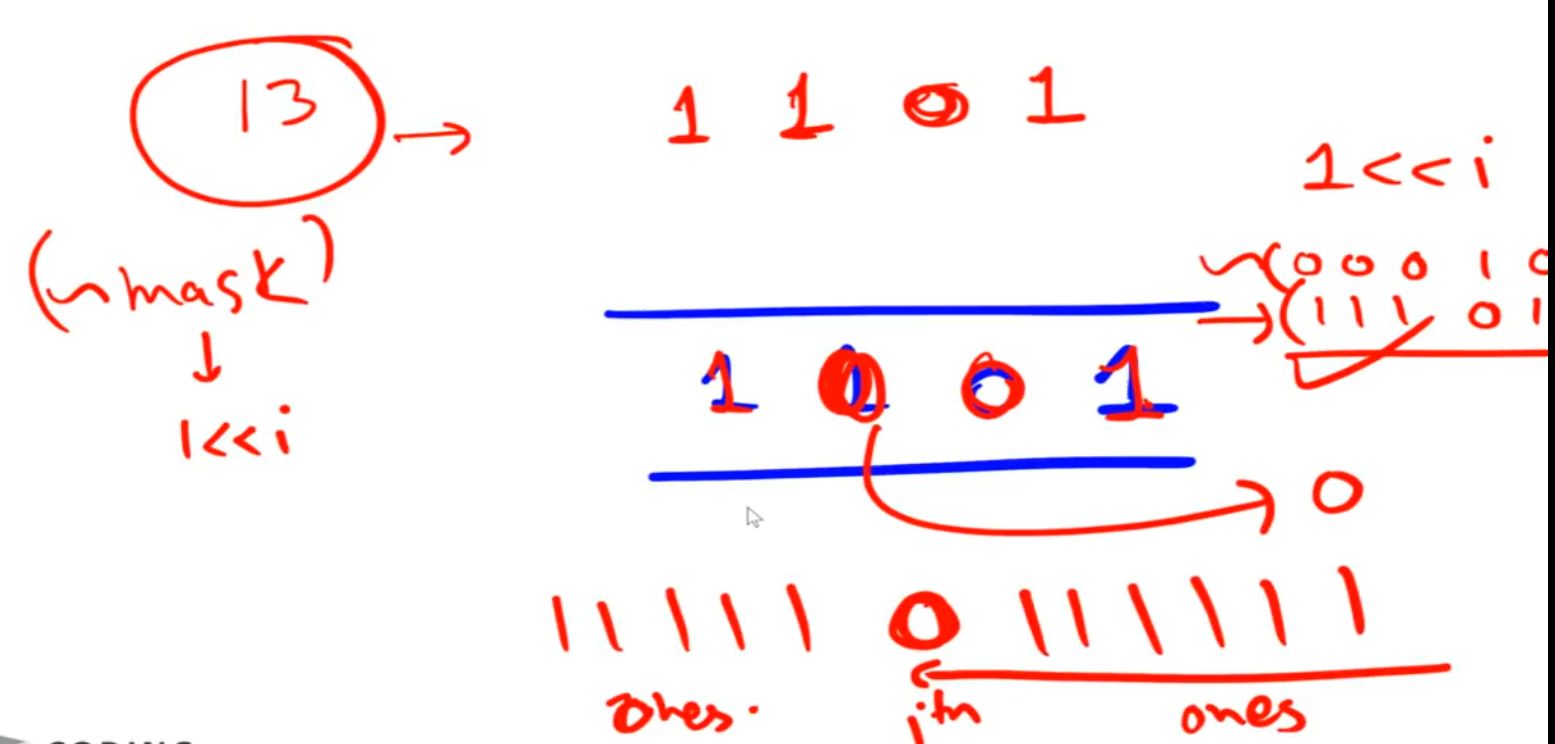 13 → 1 1 0 1
1<<i
(~mask)
~(0 0 0 1 0
→(1 1 1 0 1
↓
1 0 0 1
1<<i
0
1 1 1 1 1 0 1 1 1 1 1 1 1
ones. ith ones
CODING